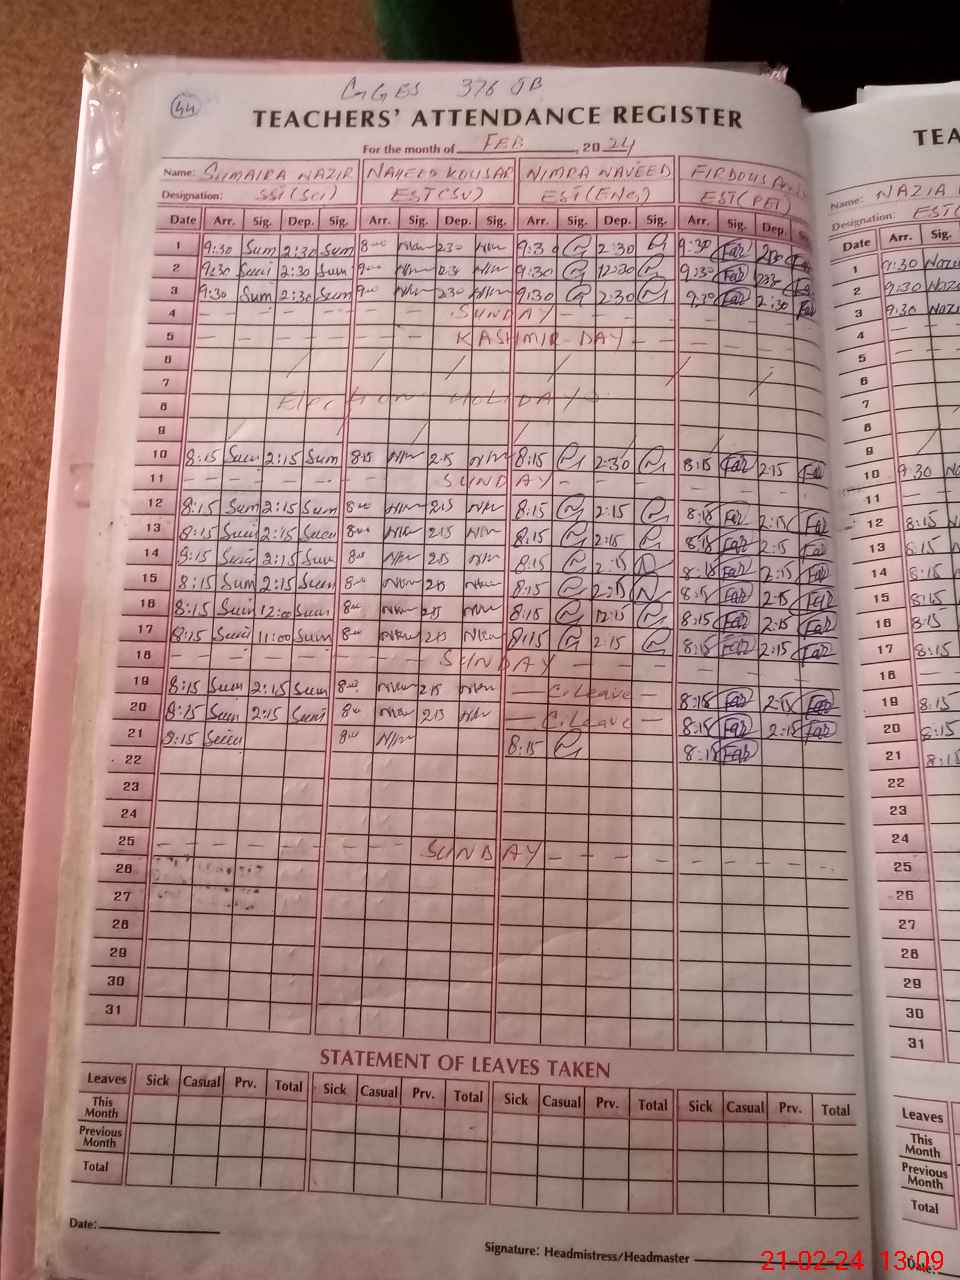 44
GGES 376 JB
TEACHERS' ATTENDANCE REGISTER
For the month of FEB, 2024
Name: SUMAIRA NAZIR NAHEED KOUSAR NIMRA NAVEED FIRDOUS
Designation: SST(Sci) EST(SV) EST(ENG) EST(PET)
Date Arr. Sig. Dep. Sig. Arr. Sig. Dep. Sig. Arr. Sig. Dep. Sig. Arr. Sig. Dep.
1 9:30 Sum 2:30 Sum 8:00 230 9:30 2:30 9:30 Far 230
2 9:30 Sum 2:30 Sum 9:00 230 9:30 9:30 Far
3 9:30 Sum 2:30 Sum 9:00 230 9:30 2:30 9:30 Far 2:30 Far
4 SUNDAY
5 KASHMIR DAY
6
7
8 Election HOLIDAYS
9
10 8:15 Sum 2:15 Sum 8:15 2:15 8:15 2:30 8:15 Far 2:15 Far
11 SUNDAY
12 8:15 Sum 2:15 Sum 8:00 215 8:15 2:15 8:15 Far 2:15 Far
13 8:15 Sum 2:15 Sum 8:00 215 8:15 2:15 8:15 Far 2:15 Far
14 8:15 Sum 2:15 Sum 8:00 215 8:15 2:15 8:15 Far 2:15 Far
15 8:15 Sum 2:15 Sum 8:00 215 8:15 2:15 8:15 Far 2:15 Far
16 8:15 Sum 12:00 Sum 8:00 215 8:15 8:15 Far 2:15 Far
17 8:15 Sum 11:00 Sum 8:00 215 8:15 2:15 8:15 Far 2:15 Far
18 SUNDAY
19 8:15 Sum 2:15 Sum 8:00 215 C.Leave 8:15 Far 2:15 Far
20 8:15 Sum 2:15 Sum 8:00 215 C.Leave 8:15 Far 2:15 Far
21 8:15 Sum 8:00 8:15 8:15 Far
22
23
24
25 SUNDAY
26
27
28
29
30
31
STATEMENT OF LEAVES TAKEN
Leaves Sick Casual Prv. Total Sick Casual Prv. Total Sick Casual Prv. Total Sick Casual Prv. Total
This Month
Previous Month
Total
Date:
Signature: Headmistress/Headmaster
TEA
Name: NAZIA
Designation: EST
Date Arr. Sig.
1 9:30
2 9:30
3 9:30
4
5
6
7
8
9
10 9:30
11
12 8:15
13 8:15
14 8:15
15 8:15
16 8:15
17 8:15
18
19 8:15
20 8:15
21 8:15
22
23
24
25
26
27
28
29
30
31
Leaves
This Month
Previous Month
Total
Date:
21-02-24 13:09